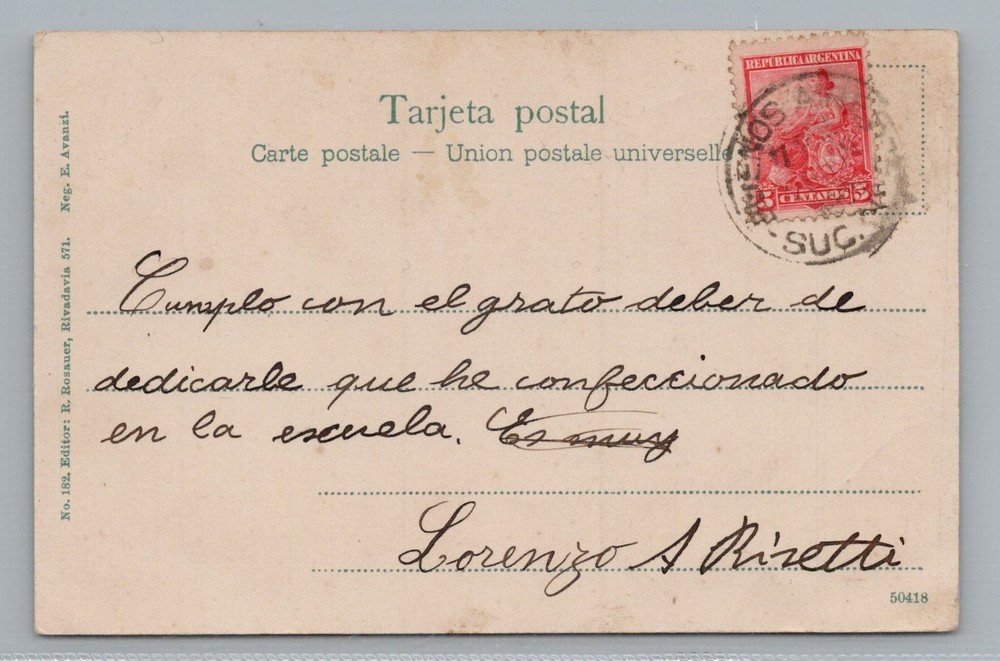 Tarjeta postal
Carte postale — Union postale universelle
REPUBLICA ARGENTINA
5 CENTAVOS 5
BUENOS AIRES
SUC.
Cumplo con el grato deber de
dedicarle que he confeccionado
en la escuela. Es muy
Lorenzo A Risetti
50418
No. 182. Editor: R. Rosauer, Rivadavia 571. Neg. E. Avanzi.